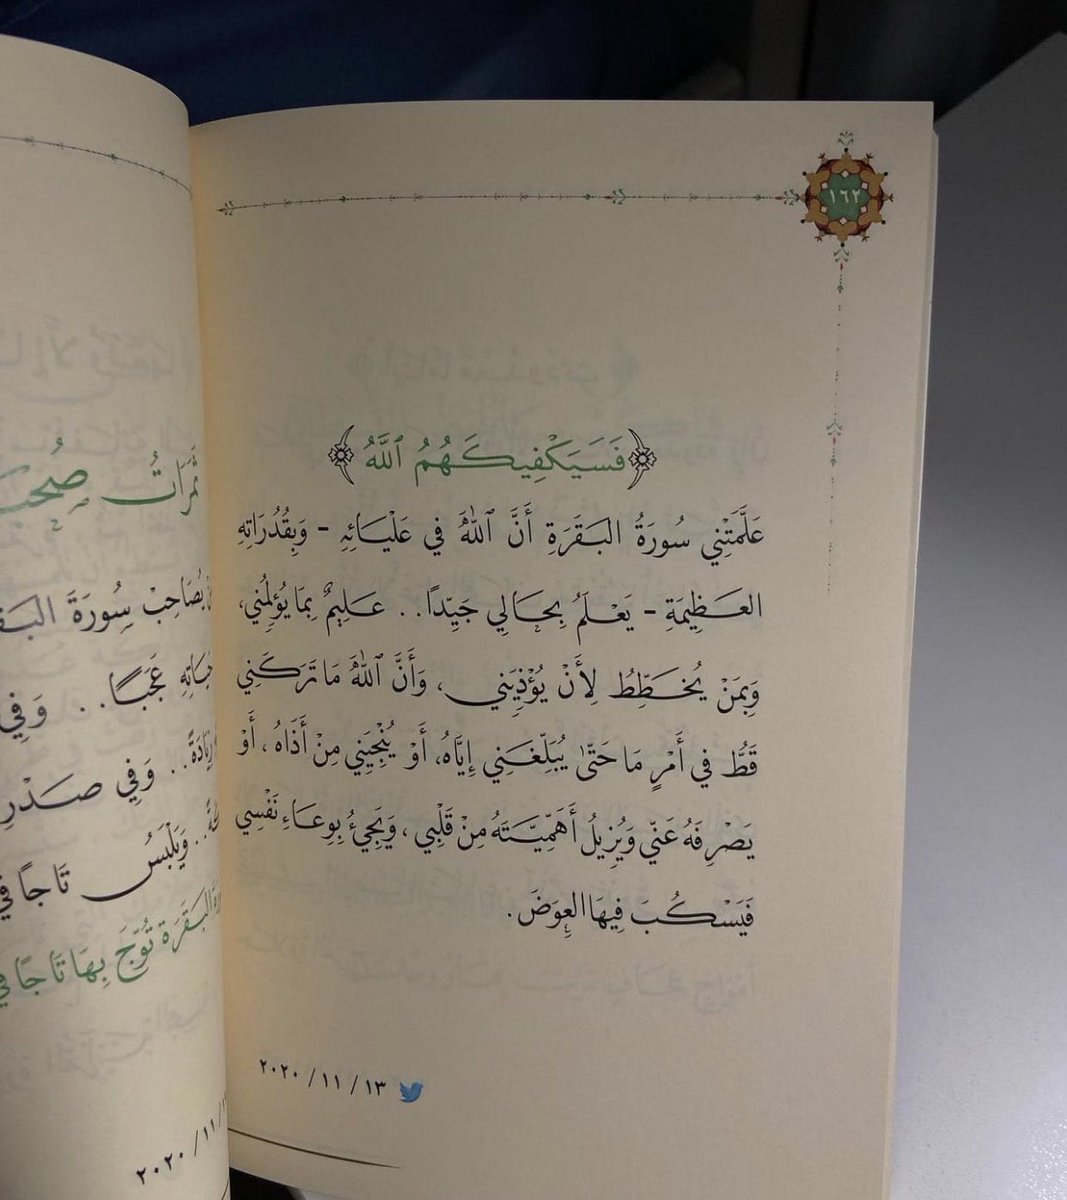 ١٦٢
﴿فَسَيَكْفِيكَهُمُ ٱللَّهُ﴾
عَلَّمَتْنِي سُورَةُ البَقَرَةِ أَنَّ ٱللهَ فِي عَلْيَائِهِ - وَبِقُدُرَاتِهِ
العَظِيمَةِ - يَعْلَمُ بِحَالِي جَيِّدًا.. عَلِيمٌ بِمَا يُؤلِمُنِي،
وَبِمَنْ يُخَطِّطُ لِأَنْ يُؤْذِيَنِي، وَأَنَّ ٱللهَ مَا تَرَكَنِي
قَطُّ فِي أَمْرٍ مَا حَتَّىٰ يُبَلِّغَنِي إِيَّاهُ، أَوْ يُنْجِيَنِي مِنْ أَذَاهُ، أَوْ
يَصْرِفَهُ عَنِّي وَيُزِيلُ أَهَمِّيَّتَهُ مِنْ قَلْبِي، وَيَجِيءُ بِوِعَاءِ نَفْسِي
فَيَسْكُبَ فِيهَا العِوَضَ.
٢٠٢٠/١١/١٣
ثَمَرَاتُ
يُصَاحِبْ سُورَةَ
عَجَبًا.. وَفِي
وَفِي صَدْرِ
وَيَلْبَسُ تَاجًا فِي
البَقَرَة تُوِّجَ بِهَا تَاجًا فِي
٢٠٢٠/١١/